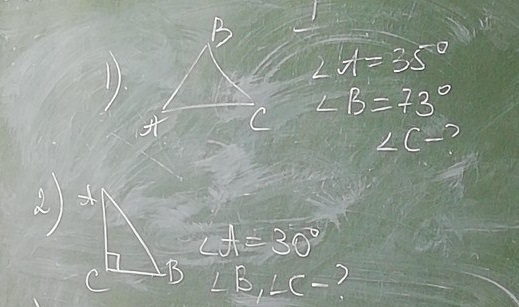 1
1).
B
A
C
∠A = 35°
∠B = 73°
∠C - ?
2)
A
C
B
∠A = 30°
∠B, ∠C - ?